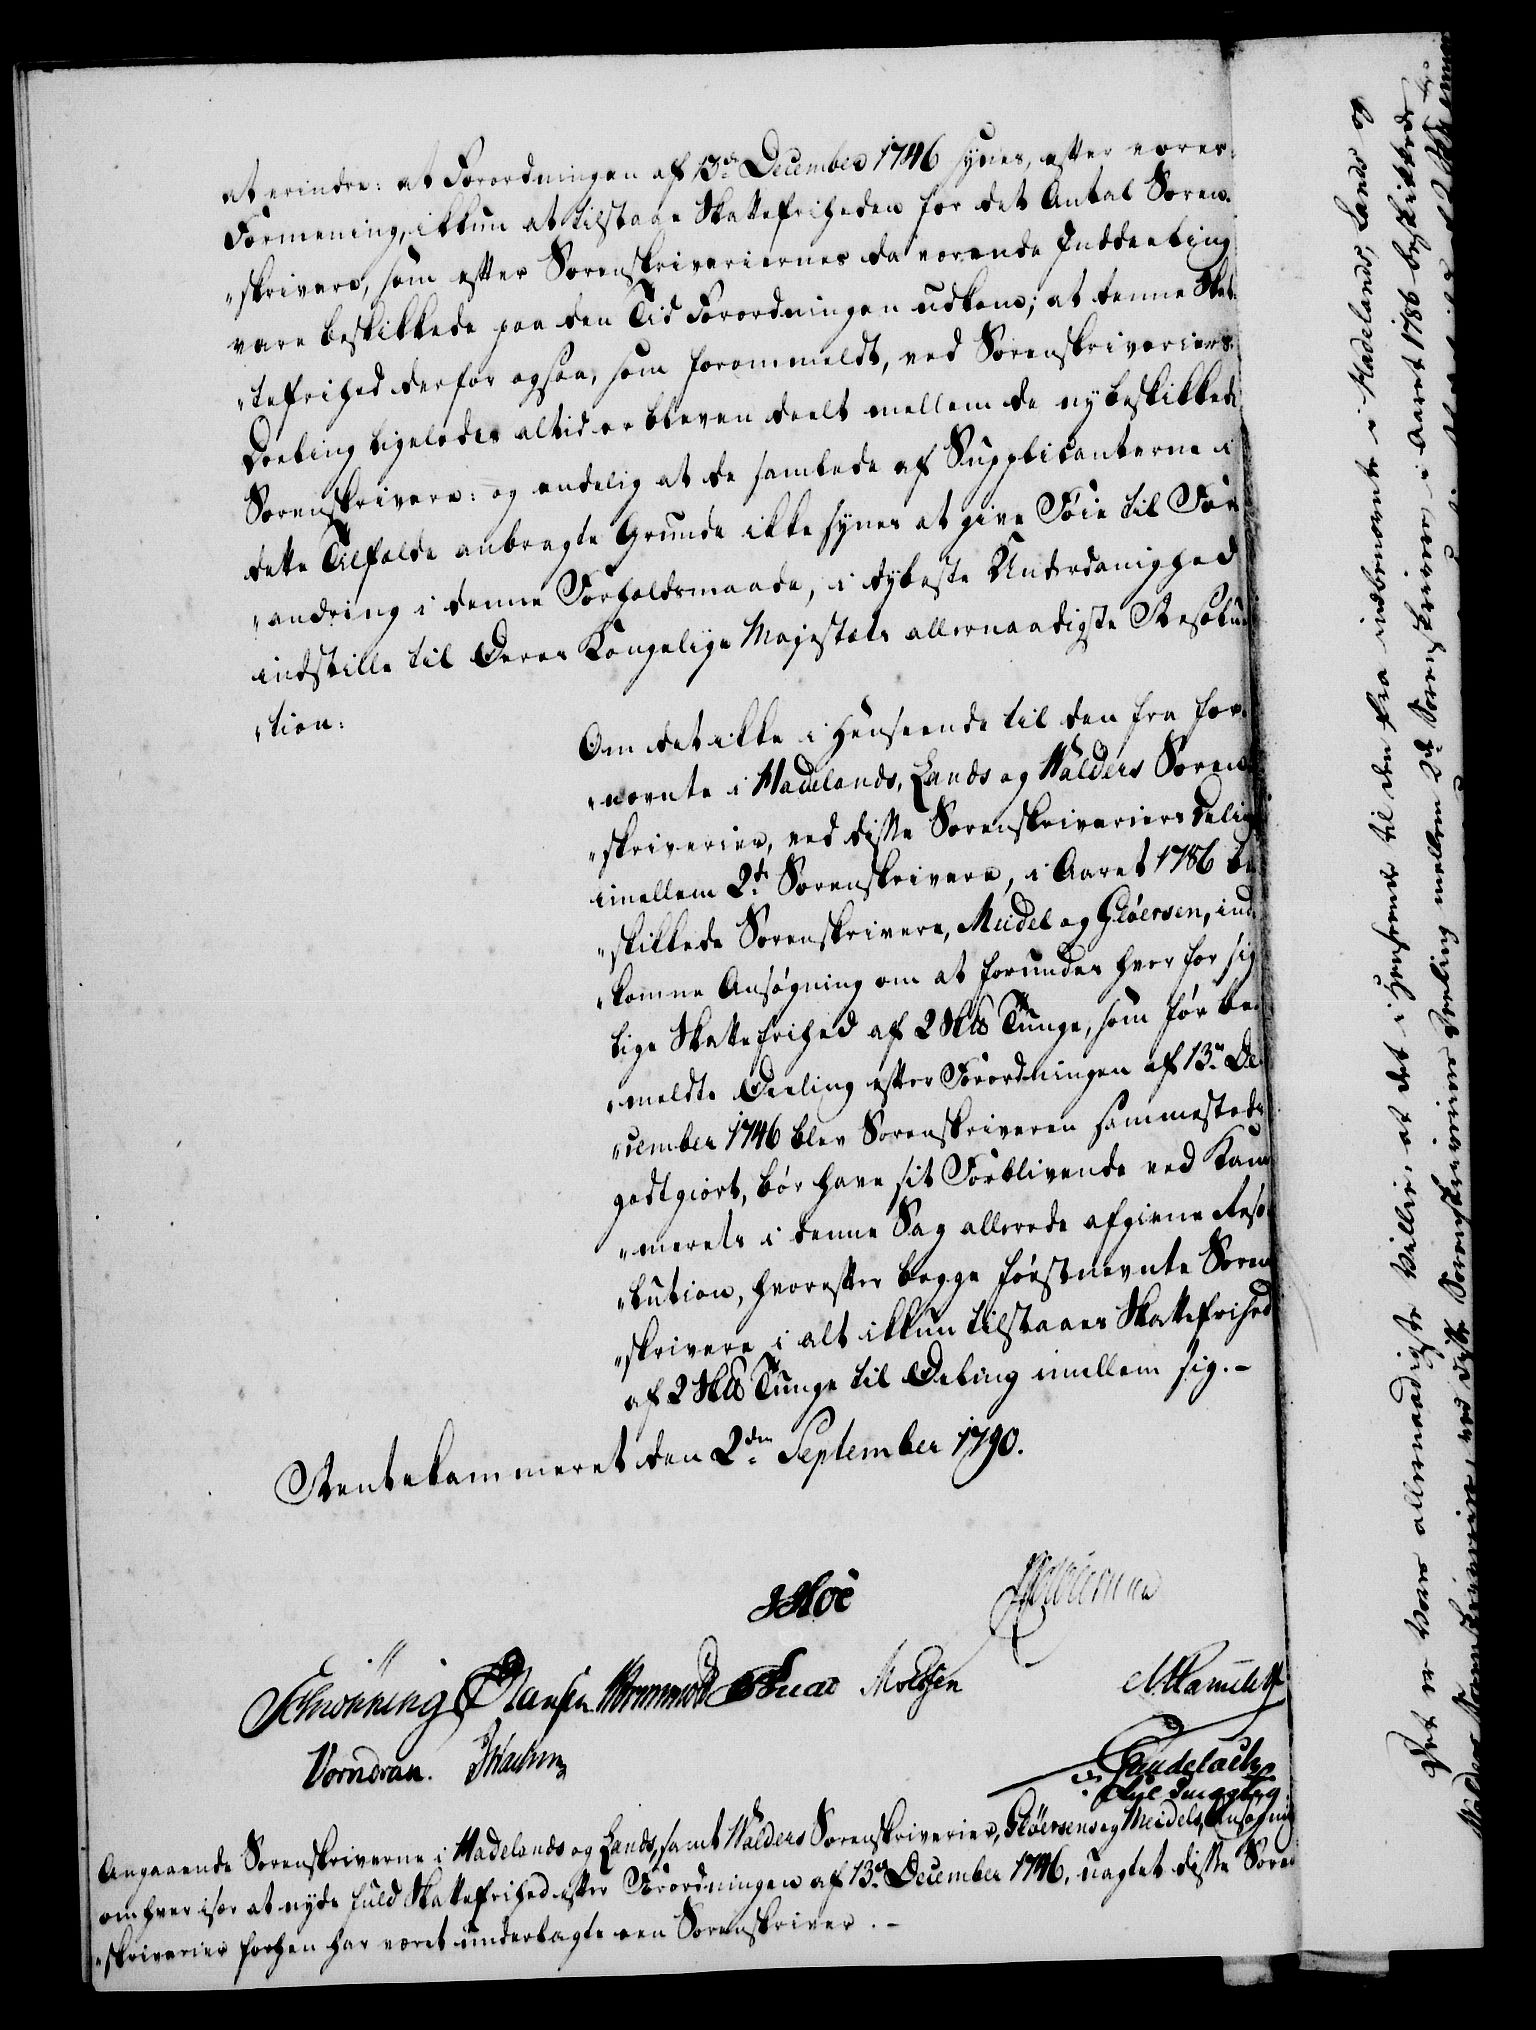 at erindre: at Forordningen af 13de December 1746 synes, efter vores
Formening, ikkun at tilstaae Skattefriheden for det Antal Soren-
"skrivere, som efter Sorenskriveriernes da værende Inddeeling
vare beskikkede paa den Tid Forordningen udkom; at denne Skat-
"tefrihed derfor ogsaa, som forommeldt, ved Sorenskriveriers
Deeling ligeledes altid er bleven deelt mellem de nybeskikkede
Sorenskrivere: og endelig at de samtlede af Supplicanterne i
dette Tilfælde anbragte Grunde ikke synes at give Föie til For-
"andring i denne Forholdsmaade, i dybeste Underdanighed
indstille til Deres Kongelige Majestæts allernaadigste Resolu-
"tion:
Om det ikke i Henseende til den fra for-
"nævnte i Hadelands, Lands og Walders Soren-
"skriverier, ved disse Sorenskriveriers Deling
imellem 2de Sorenskrivere, i Aaret 1786 be-
"skikkede Sorenskrivere, Meidel og Glöersen, ind-
"komne Ansögning om at forundes hver for sig
lige Skattefrihed af 2 Sk℔ Tunge, som för be-
"meldte Deeling efter Forordningen af 13de De-
"cember 1746 blev Sorenskriveren sammesteds
godtgiort, bör have sit Forblivende ved Kam-
"merets i denne Sag allerede afgivne Reso-
"lution, hvorefter begge förstnevnte Soren-
"skrivere i alt ikkun tilstaaes Skattefrihed
af 2 Sk℔ Tunge til Deling imellem sig. -
Rentekammeret den 2den September 1790.
Hoë
Schönning Hansen Wormskiold Knar Moldsen
Vorndran.
Angaaende Sorenskriverne i Hadelands og Lands, samt Walders Sorenskriverier, Glöersens og Meidels, Ansögning
om hver især at nyde fuld Skattefrihed efter Forordningen af 13de December 1746, uagtet disse Soren-
"skriverier forhen har været underlagte een Sorenskriver. -
Det er Vores allernaadigste Villie, at det i Henseende til den fra indbenævnte i Hadelands, Lands og
Walders Sorenskriverier, ved disse Sorenskriveriers Deeling mellem 2de Sorenskrivere, i Aaret 1786 beskikkede